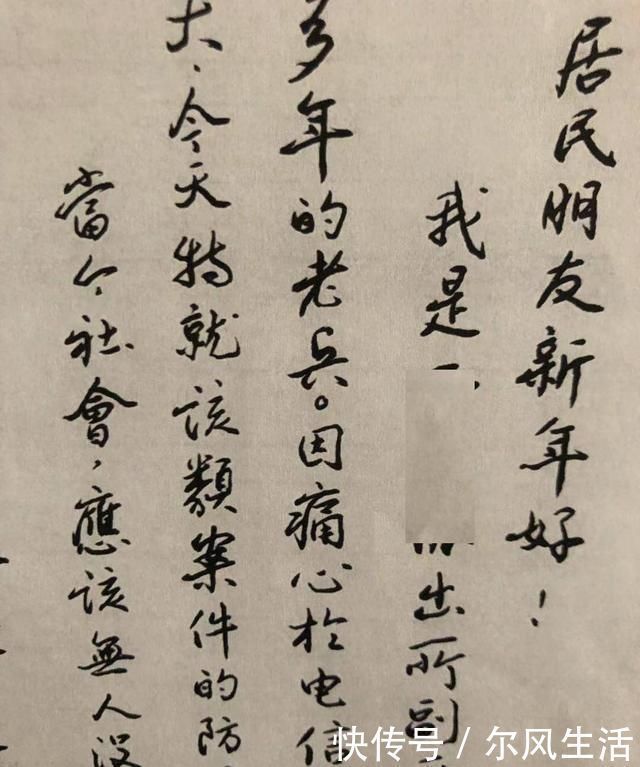 居民朋友新年好！
我是
出所副
多年的老兵。因痛心於电信
大、今天特就該類案件的防
當今社會，應該無人没
快传号／尔风生活